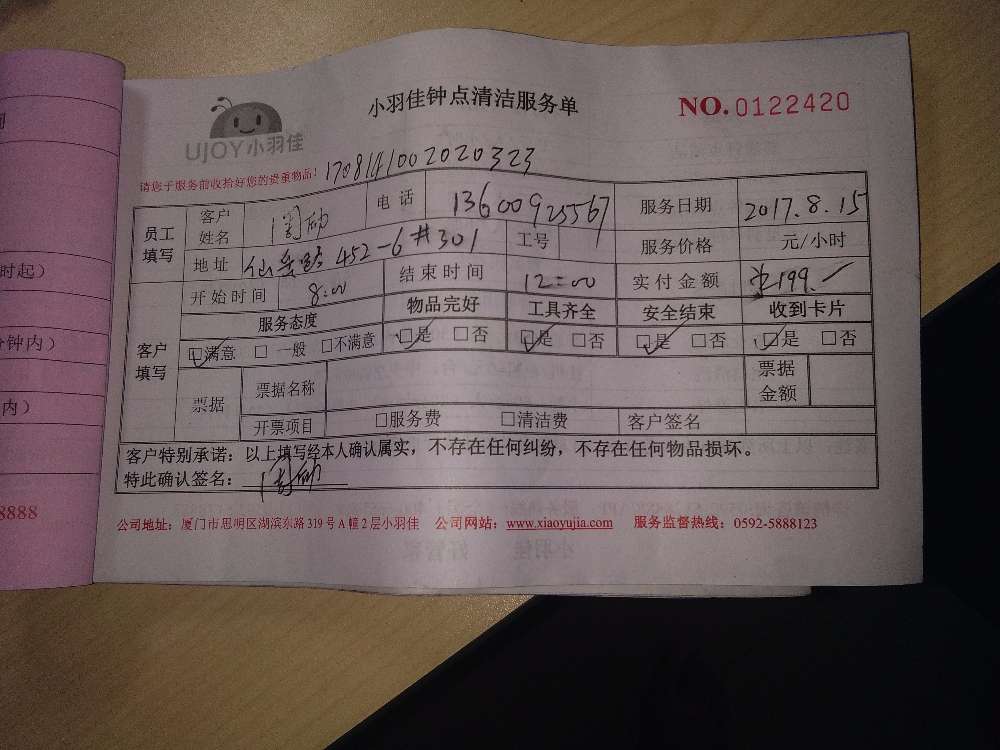 小羽佳钟点清洁服务单
NO.0122420
UJOY小羽佳
请您于服务前收拾好您的贵重物品! 1708141002020323
员工填写 客户姓名 电话 13600925567 服务日期 2017.8.15
地址 仙岳路 452-6#301 工号 服务价格 元/小时
开始时间 8:00 结束时间 12:00 实付金额 199.-
客户填写 服务态度 物品完好 工具齐全 安全结束 收到卡片
☑满意 □一般 □不满意 ☑是 □否 ☑是 □否 ☑是 □否 ☑是 □否
票据 票据名称 票据金额
开票项目 □服务费 □清洁费 客户签名
客户特别承诺：以上填写经本人确认属实，不存在任何纠纷，不存在任何物品损坏。
特此确认签名：
公司地址：厦门市思明区湖滨东路319号A幢2层小羽佳 公司网站：www.xiaoyujia.com 服务监督热线：0592-5888123
时起）
分钟内）
内）
8888